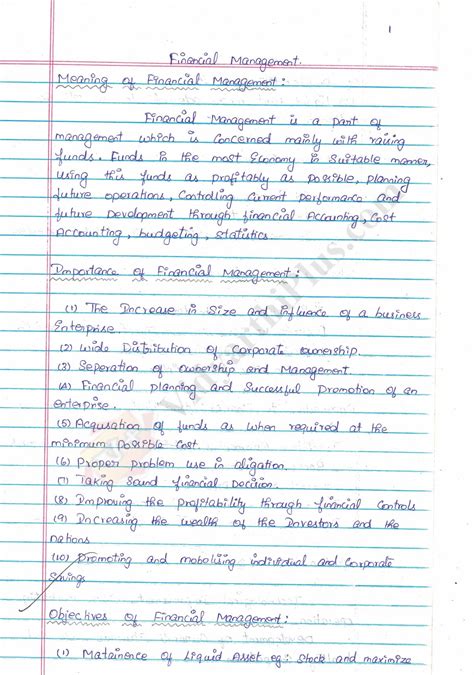 1
Financial Management.
Meaning of Financial Management:
Financial Management is a part of
management which is concerned mainly with raising
funds. Funds in the most Economy in Suitable manner,
using this funds as profitably as possible, planning
future operations, controlling current performance and
future Development through financial Accounting, cost
Accounting, budgeting, statistics
Importance of Financial Management:
(1) The Increase in Size and influence of a business
Enterprise.
(2) wide Distribution of corporate ownership.
(3) Seperation of ownership and Management.
(4) Financial planning and Successful Promotion of an
enterprise.
(5) Acqusation of funds as when required at the
minimum possible cost.
(6) Proper problem use in aligation.
(7) Taking Sound financial Decision.
(8) Improving the profitability through financial controls
(9) Increasing the wealth of the Investors and the
nations
(10) Promoting and mobolising individual and Corporate
Savings
Objectives of Financial Management:
(1) Matainence of Liquid Asset eg: Stock and maximize
VidyarthiPlus.com